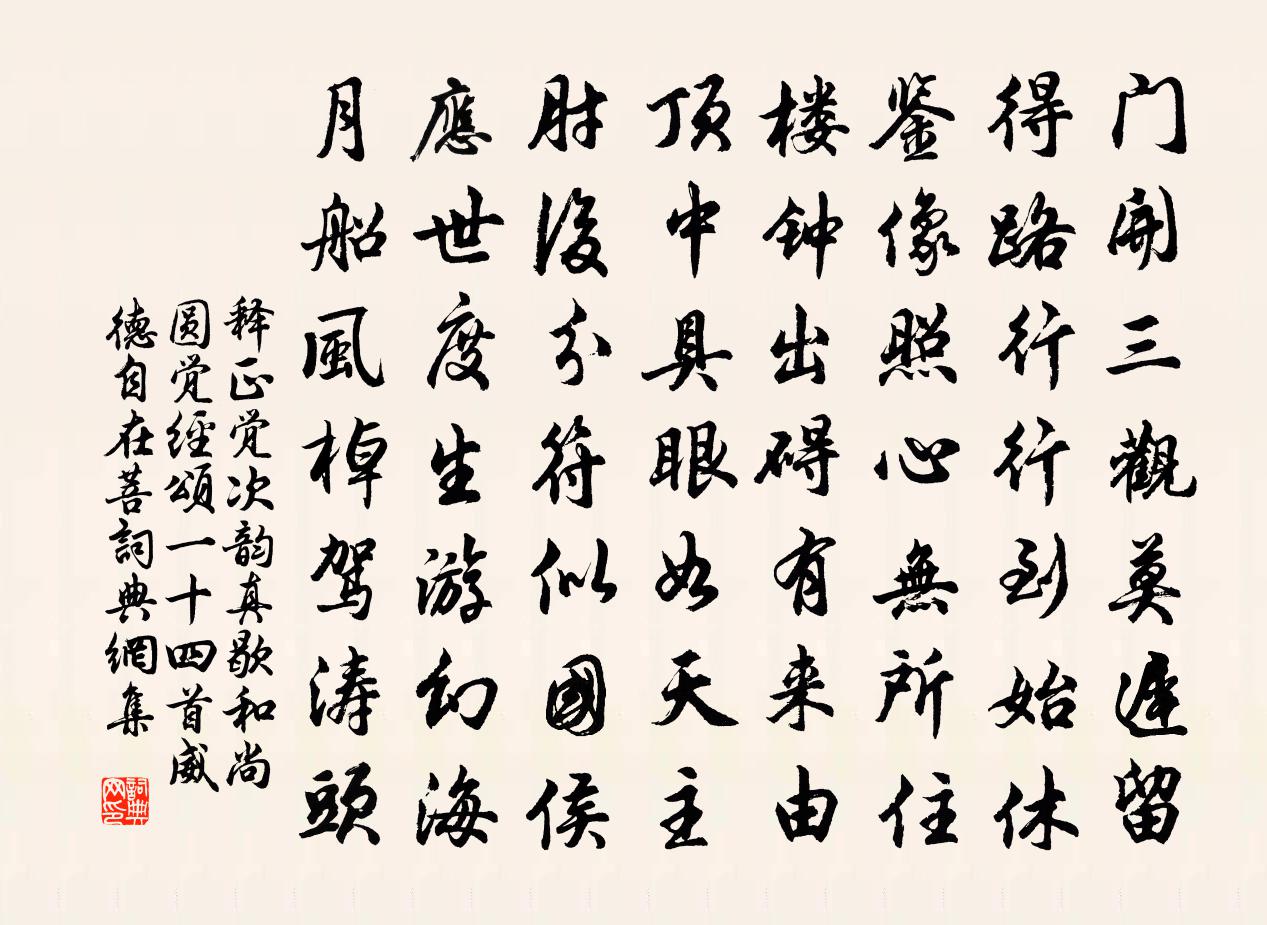 门開三觀莫遲留
得路行行到始休
鉴像照心無所住
楼钟出碍有来由
顶中具眼如天主
肘後分符似國侯
應世度生游幻海
月船風棹驾涛頭
释正觉次韵真歇和尚
圆觉經頌一十四首威
德自在菩詞典網集
詞典
网印